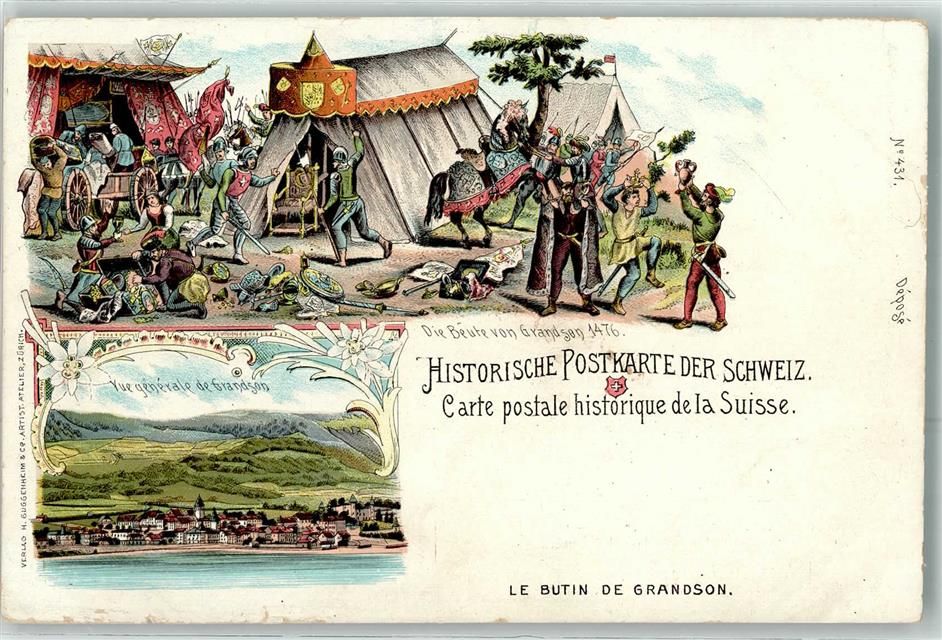 Die Beute von Grandson 1476.
Nº 431.
Déposé
Vue générale de Grandson
HISTORISCHE POSTKARTE DER SCHWEIZ.
Carte postale historique de la Suisse.
VERLAG H. GUGGENHEIM & Co. ARTIST. ATELIER, ZÜRICH.
LE BUTIN DE GRANDSON.